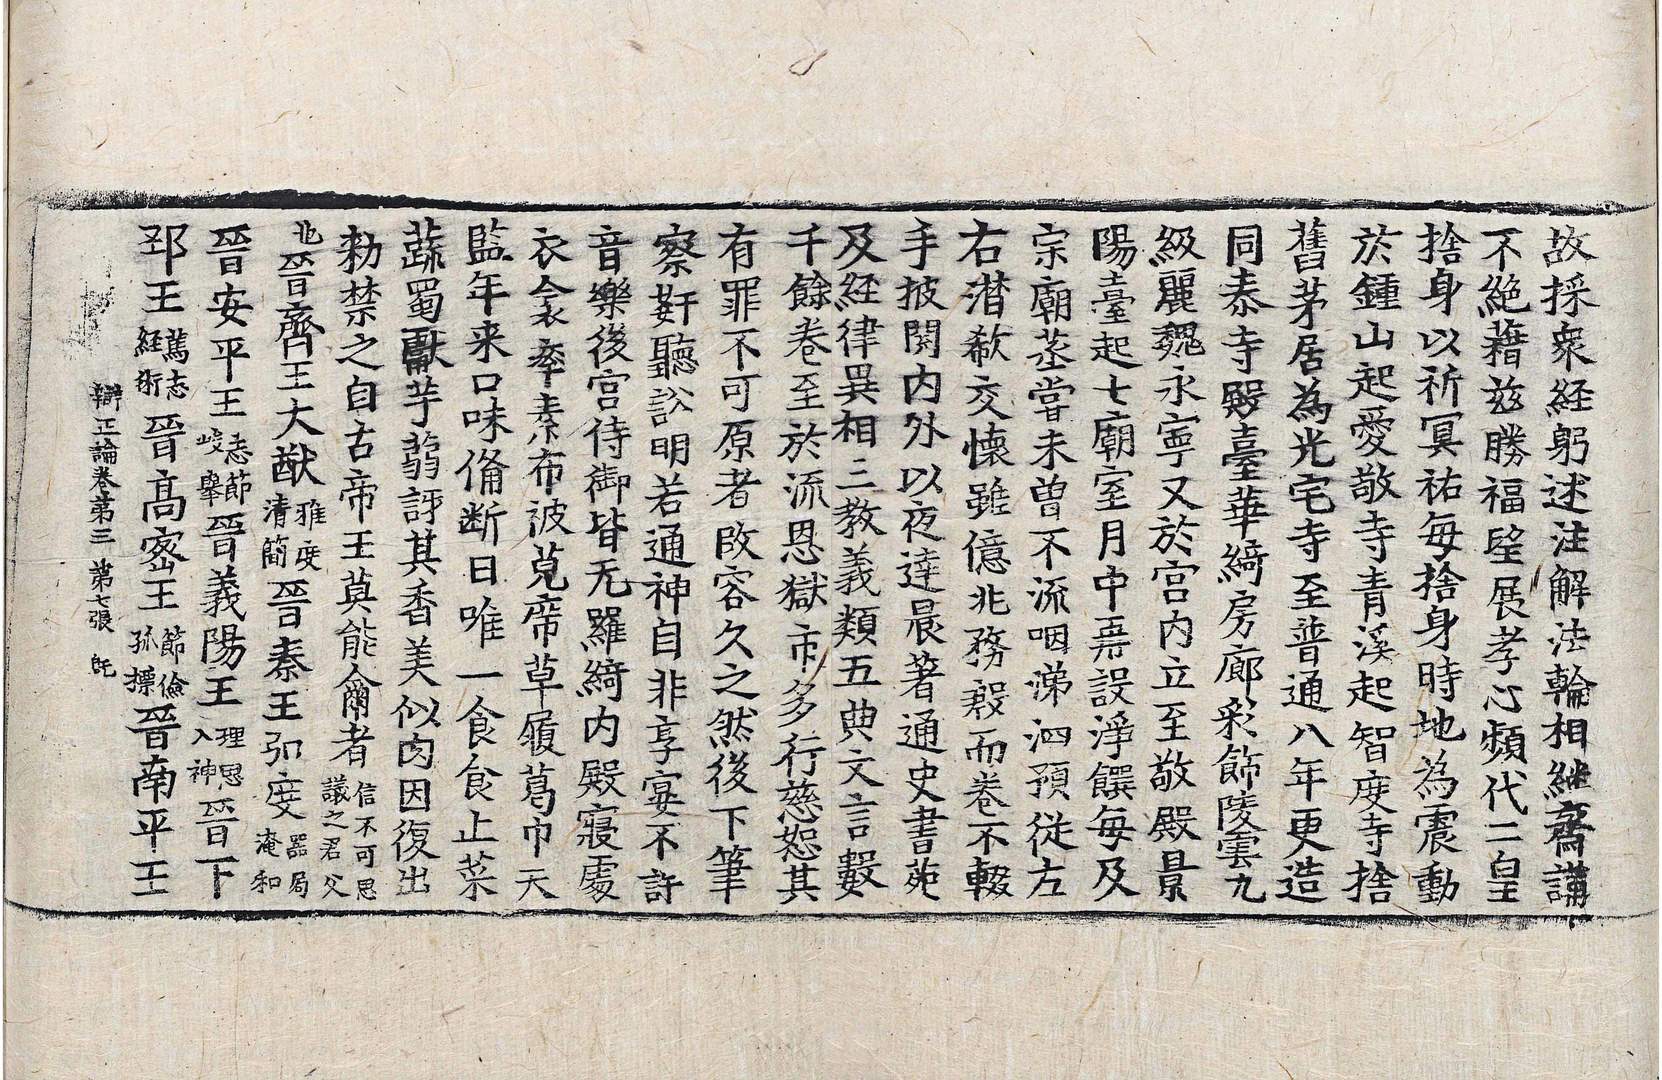 故採衆経躬述注解法輪相継齋講
不絶藉兹勝福望展孝心頻代二皇
捨身以祈冥祐每捨身時地為震動
於鍾山起愛敬寺青溪起智度寺捨
舊茅居為光宅寺至普通八年更造
同泰寺殿臺華綺房廊彩飾陵雲九
級麗魏永寧又於宫内立至敬殿景
陽臺起七廟室月中再設淨饌每及
宗廟蒸嘗未曾不流咽涕泗預従左
右潜欷交懷雖億兆務殷而卷不輟
手披閱内外以夜達晨著通史書苑
及経律異相三教義類五典文言數
千餘卷至於流恩獄市多行慈恕其
有罪不可原者改容久之然後下筆
察姧聽訟明若通神自非享宴不許
音樂後宫侍御皆无羅綺内殿寢處
衣衾率素布被莞席草履葛巾天
監年来口味俻断日唯一食食止菜
蔬蜀獻芋蒻訝其香美似肉因復出
勑禁之自古帝王莫能尒者 信不可思議之君父
也晉齊王大猷 雅度清簡 晉秦王弘度 器局淹和
晉安平王 志節峻舉 晉義陽王 理思入神 晉下
邳王 篤志経術 晉高密王 節儉孤摽 晉南平王
辯正論卷第三 第七張